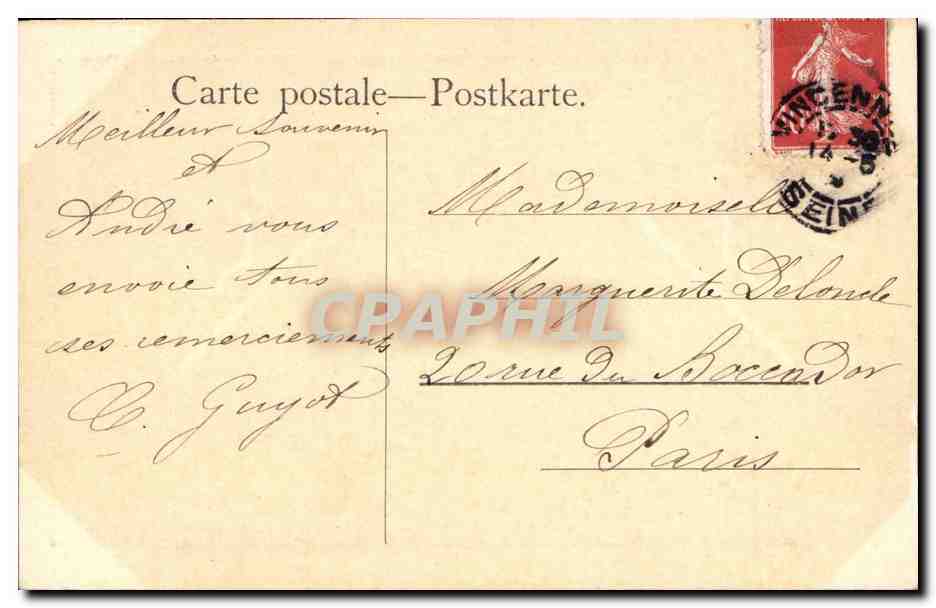 Carte postale—Postkarte.
Meilleur Souvenir
et
André vous
envoie tous
ses remerciements
C. Guyot
Mademoiselle
Marguerite Delonde
20 rue du Boccador
Paris
CPAPHIL
VINCENNES
14
SEINE